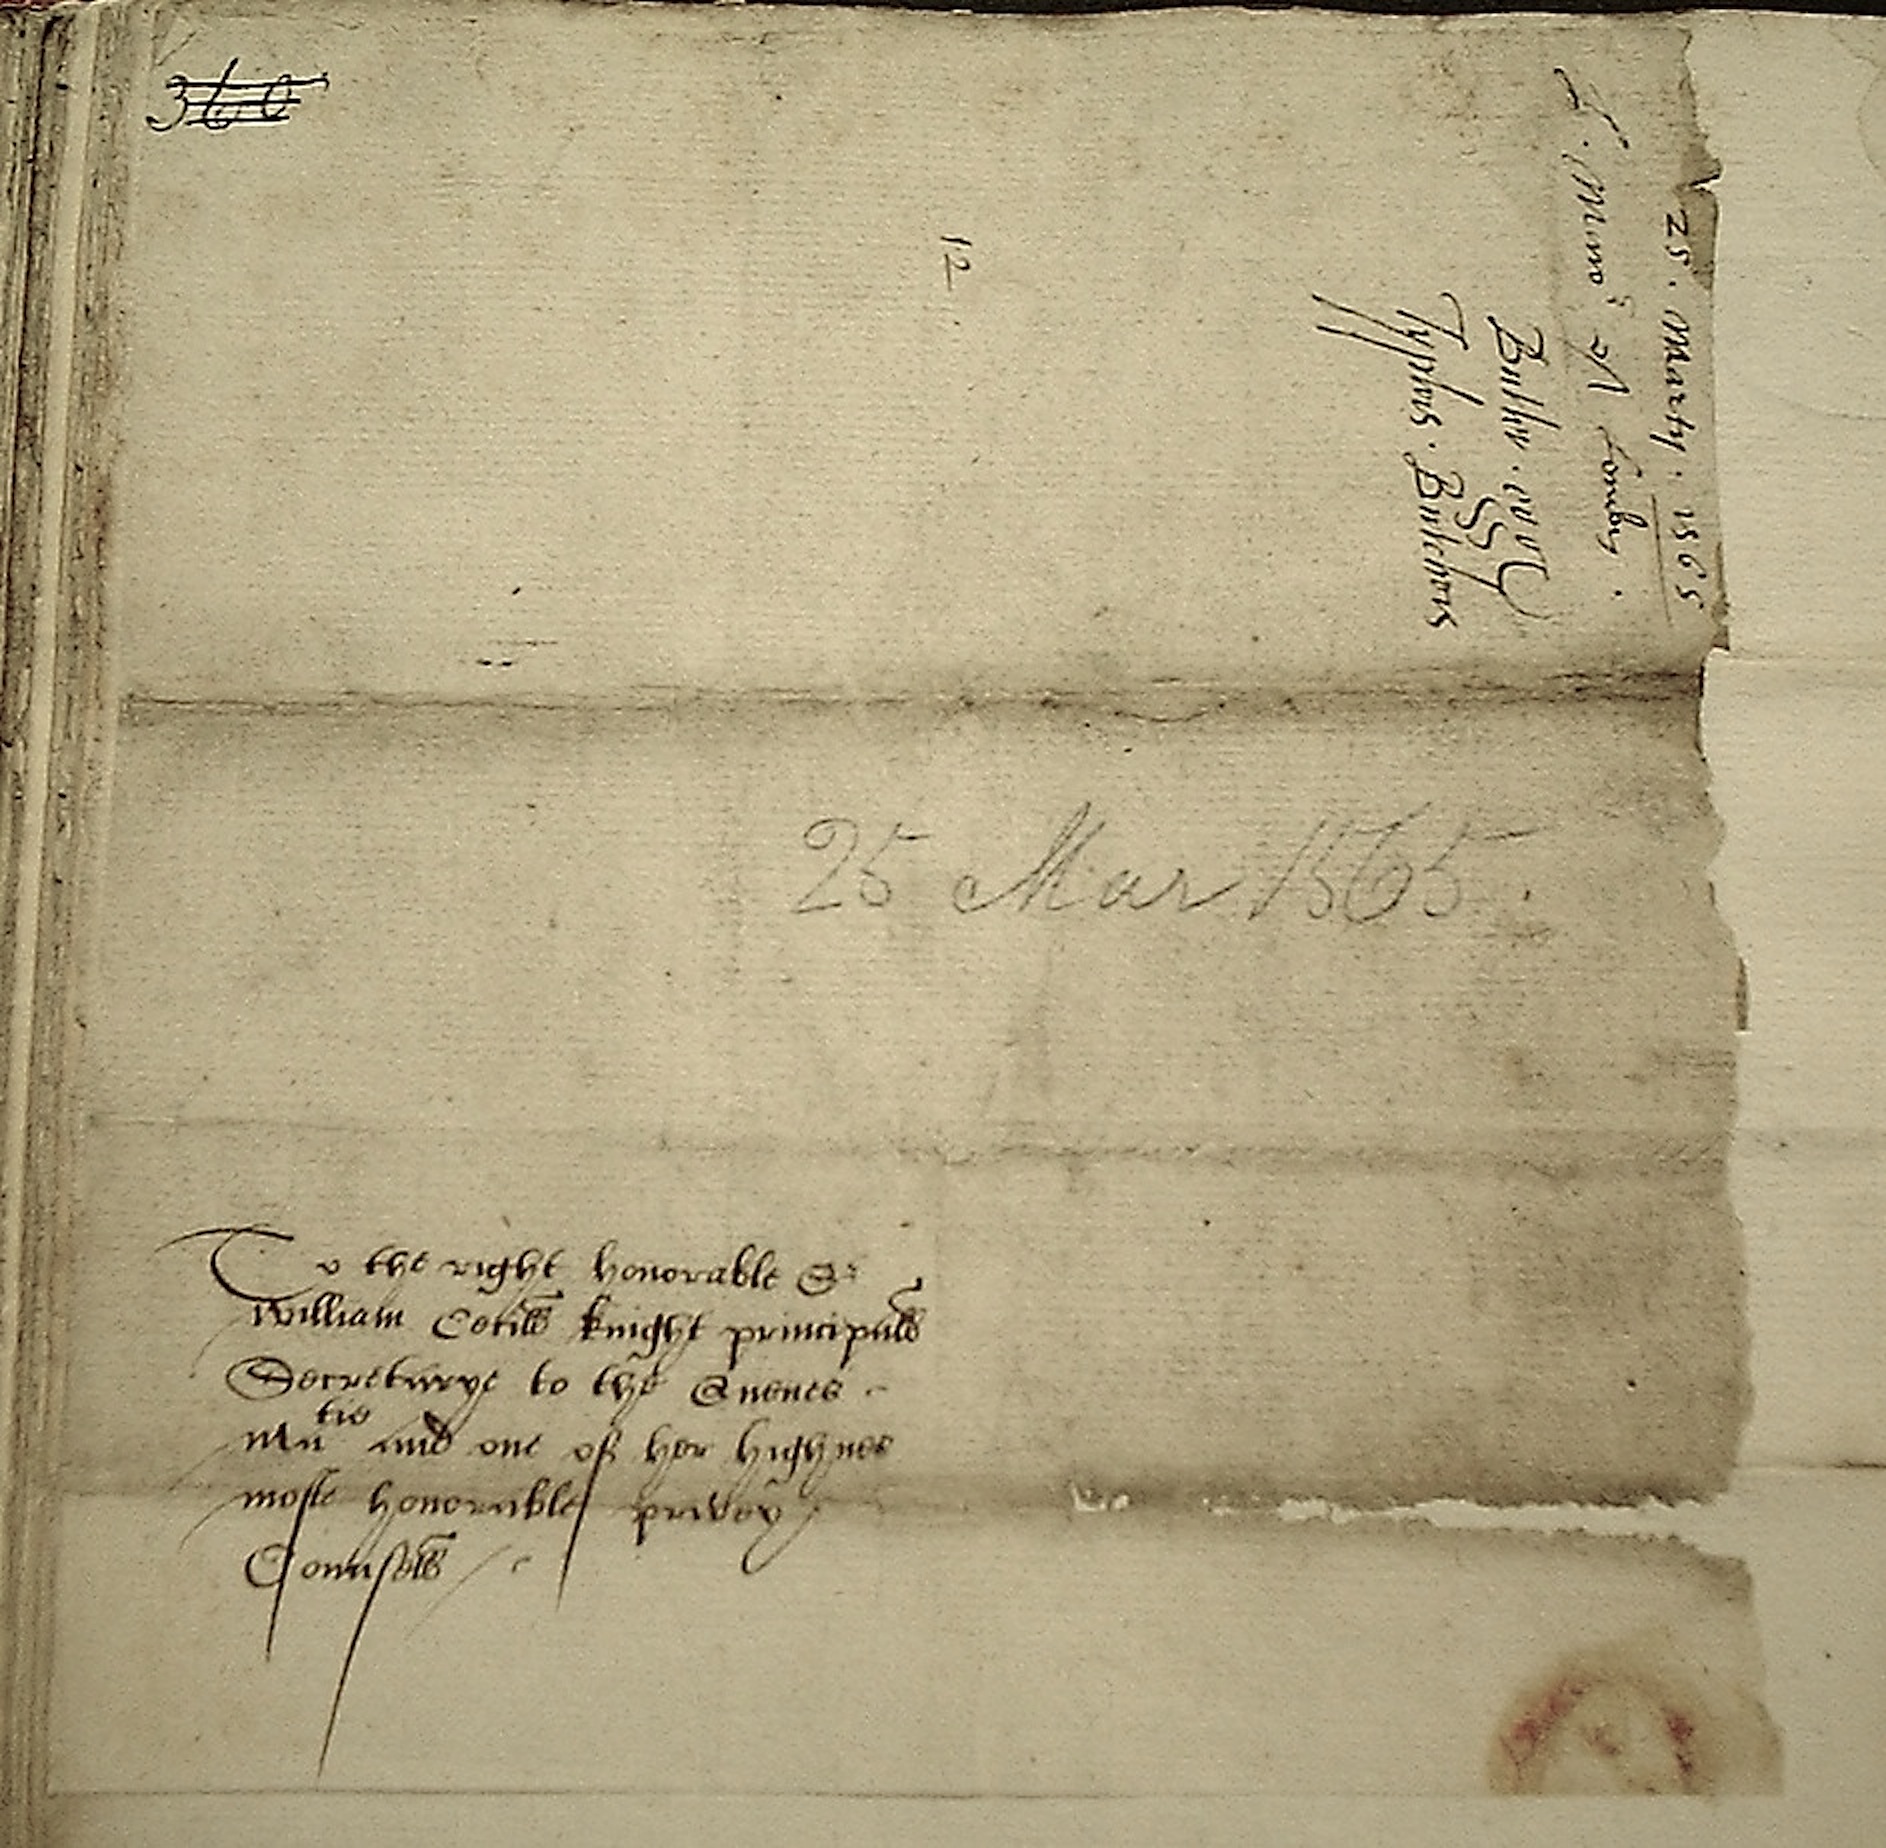 360
25. Martij. 1565
Butler.
12
25 Mar 1565.
To the right honorable Sr
William Cecill knight principall
Secretarye to the Quenes
Matie and one of her highnes
moste honorable privey
Counsell